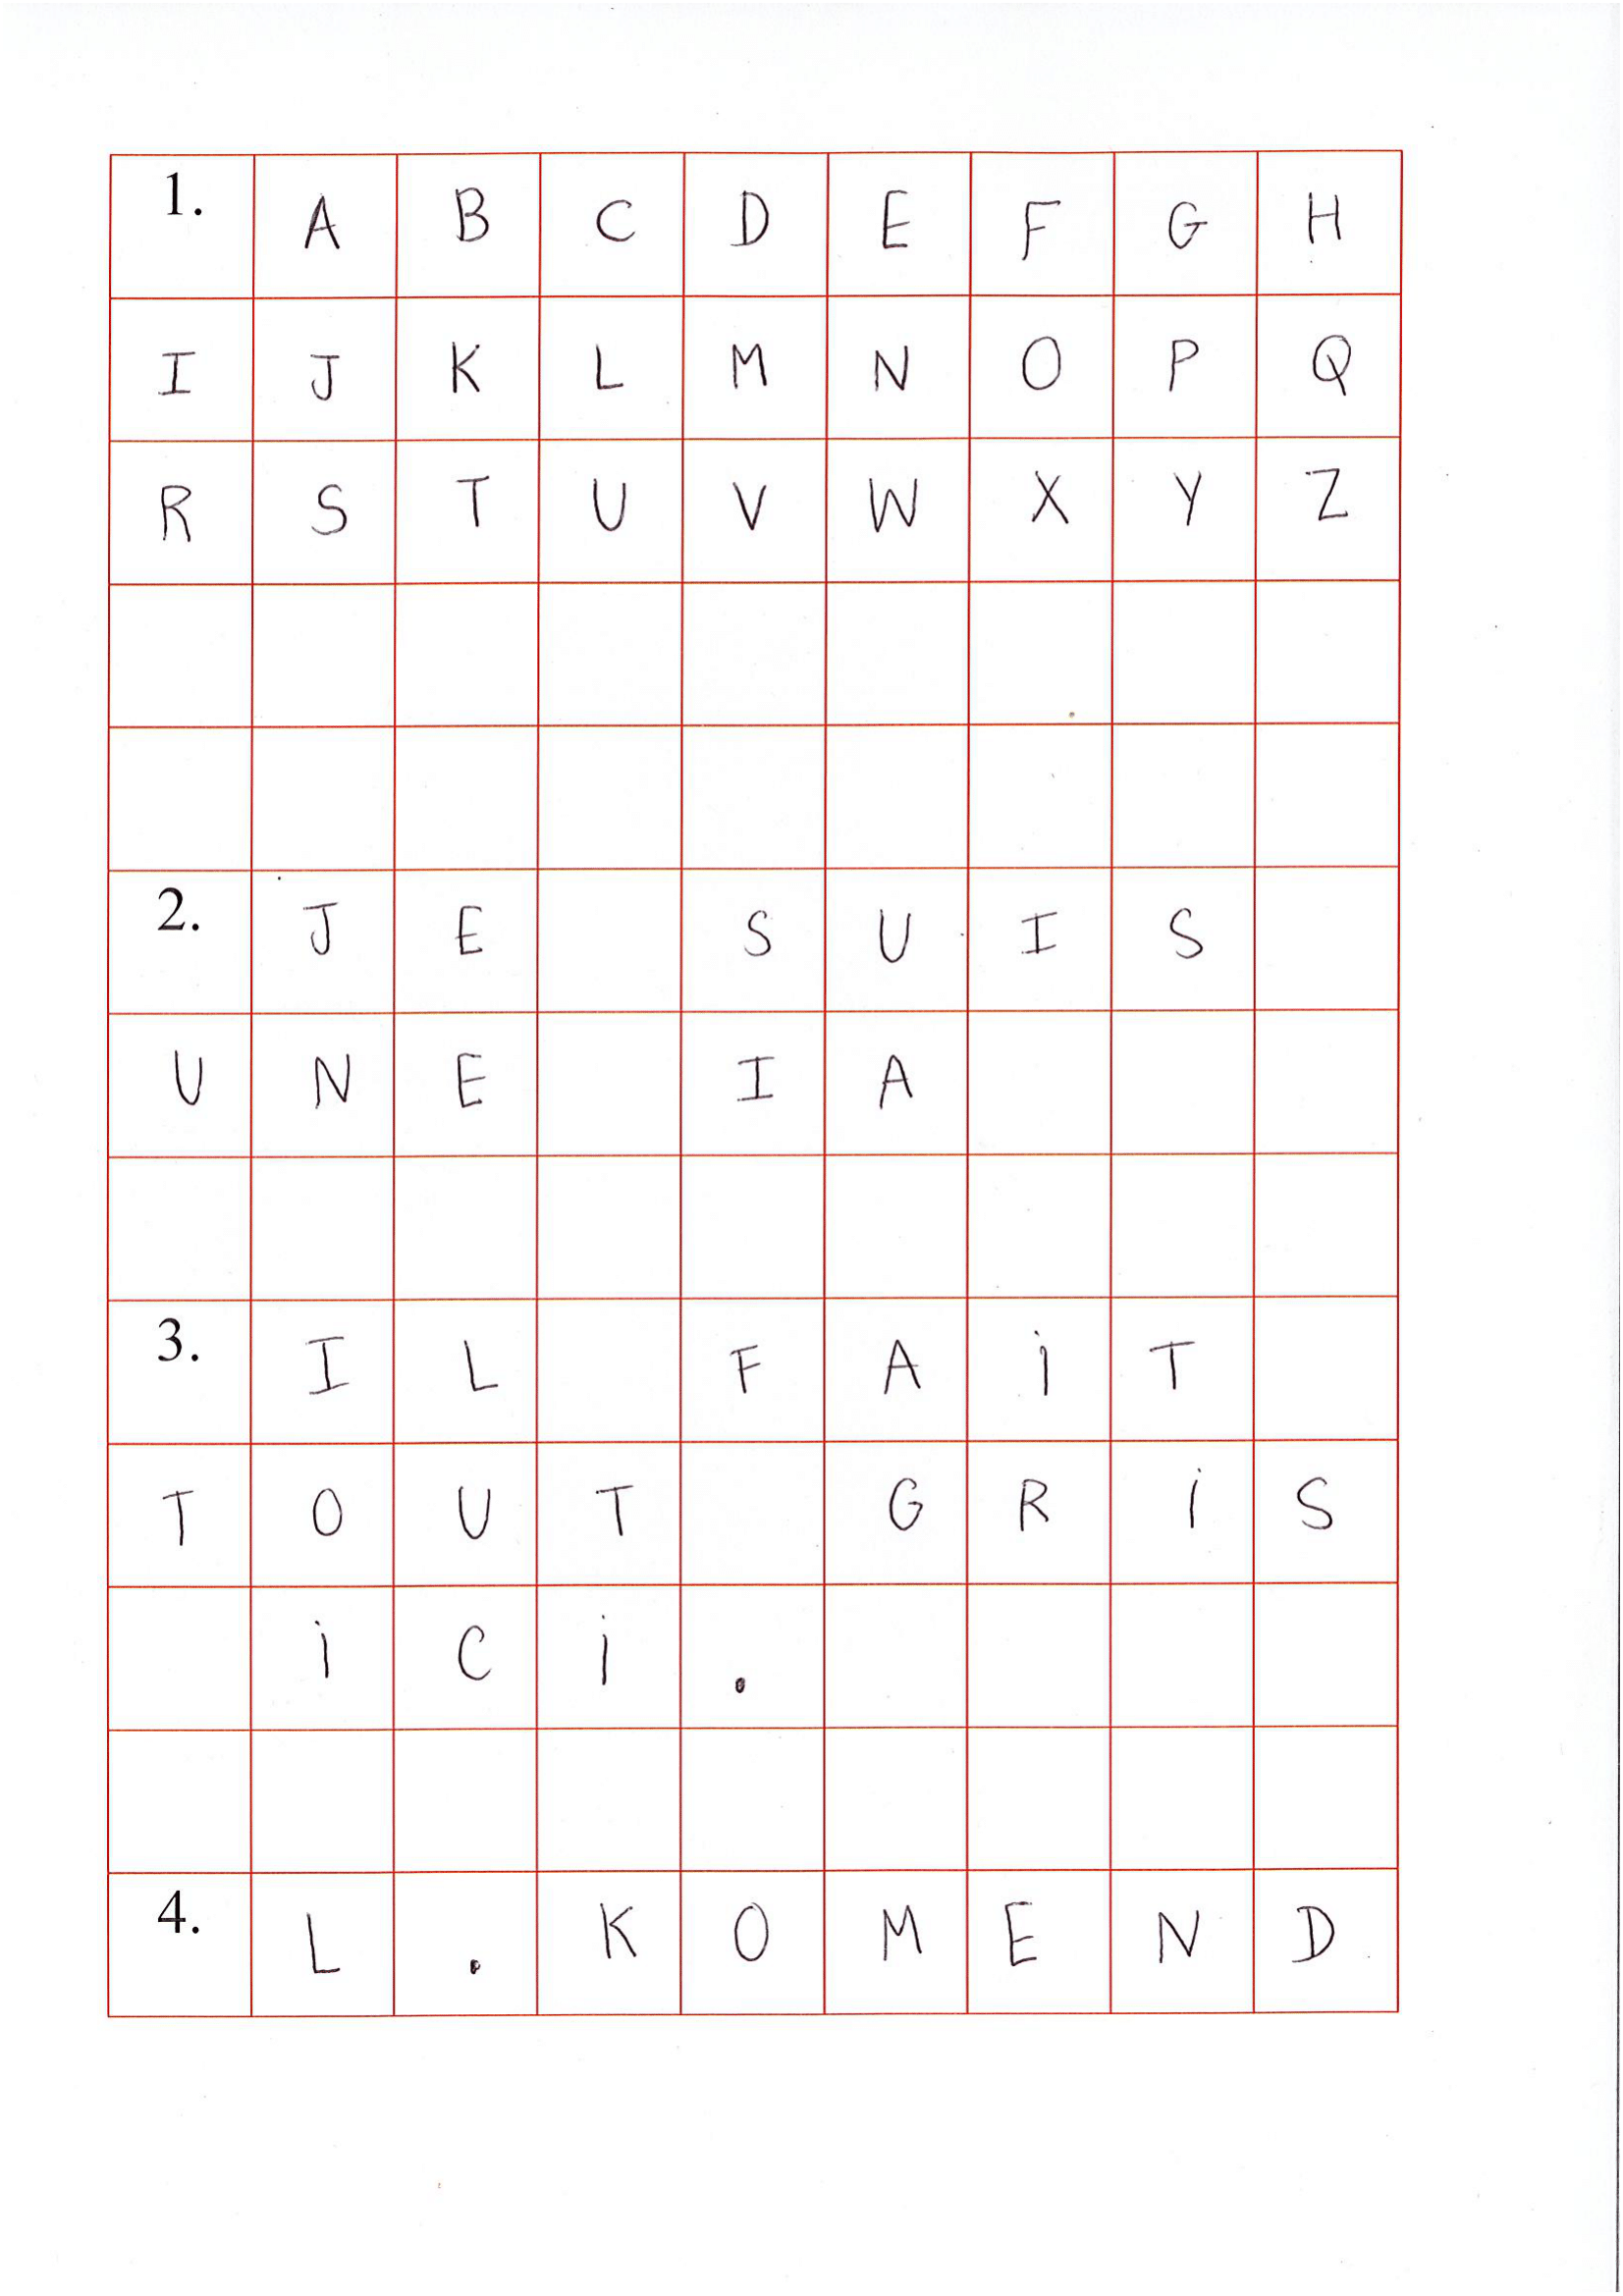 1. A B C D E F G H
I J K L M N O P Q
R S T U V W X Y Z
2. J E S U I S
U N E I A
3. I L F A i T
T O U T G R i S
i C i .
4. L . K O M E N D